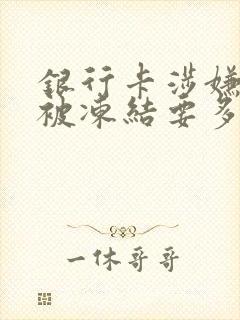 銀行卡涉嫌
被凍結要多
一休哥哥